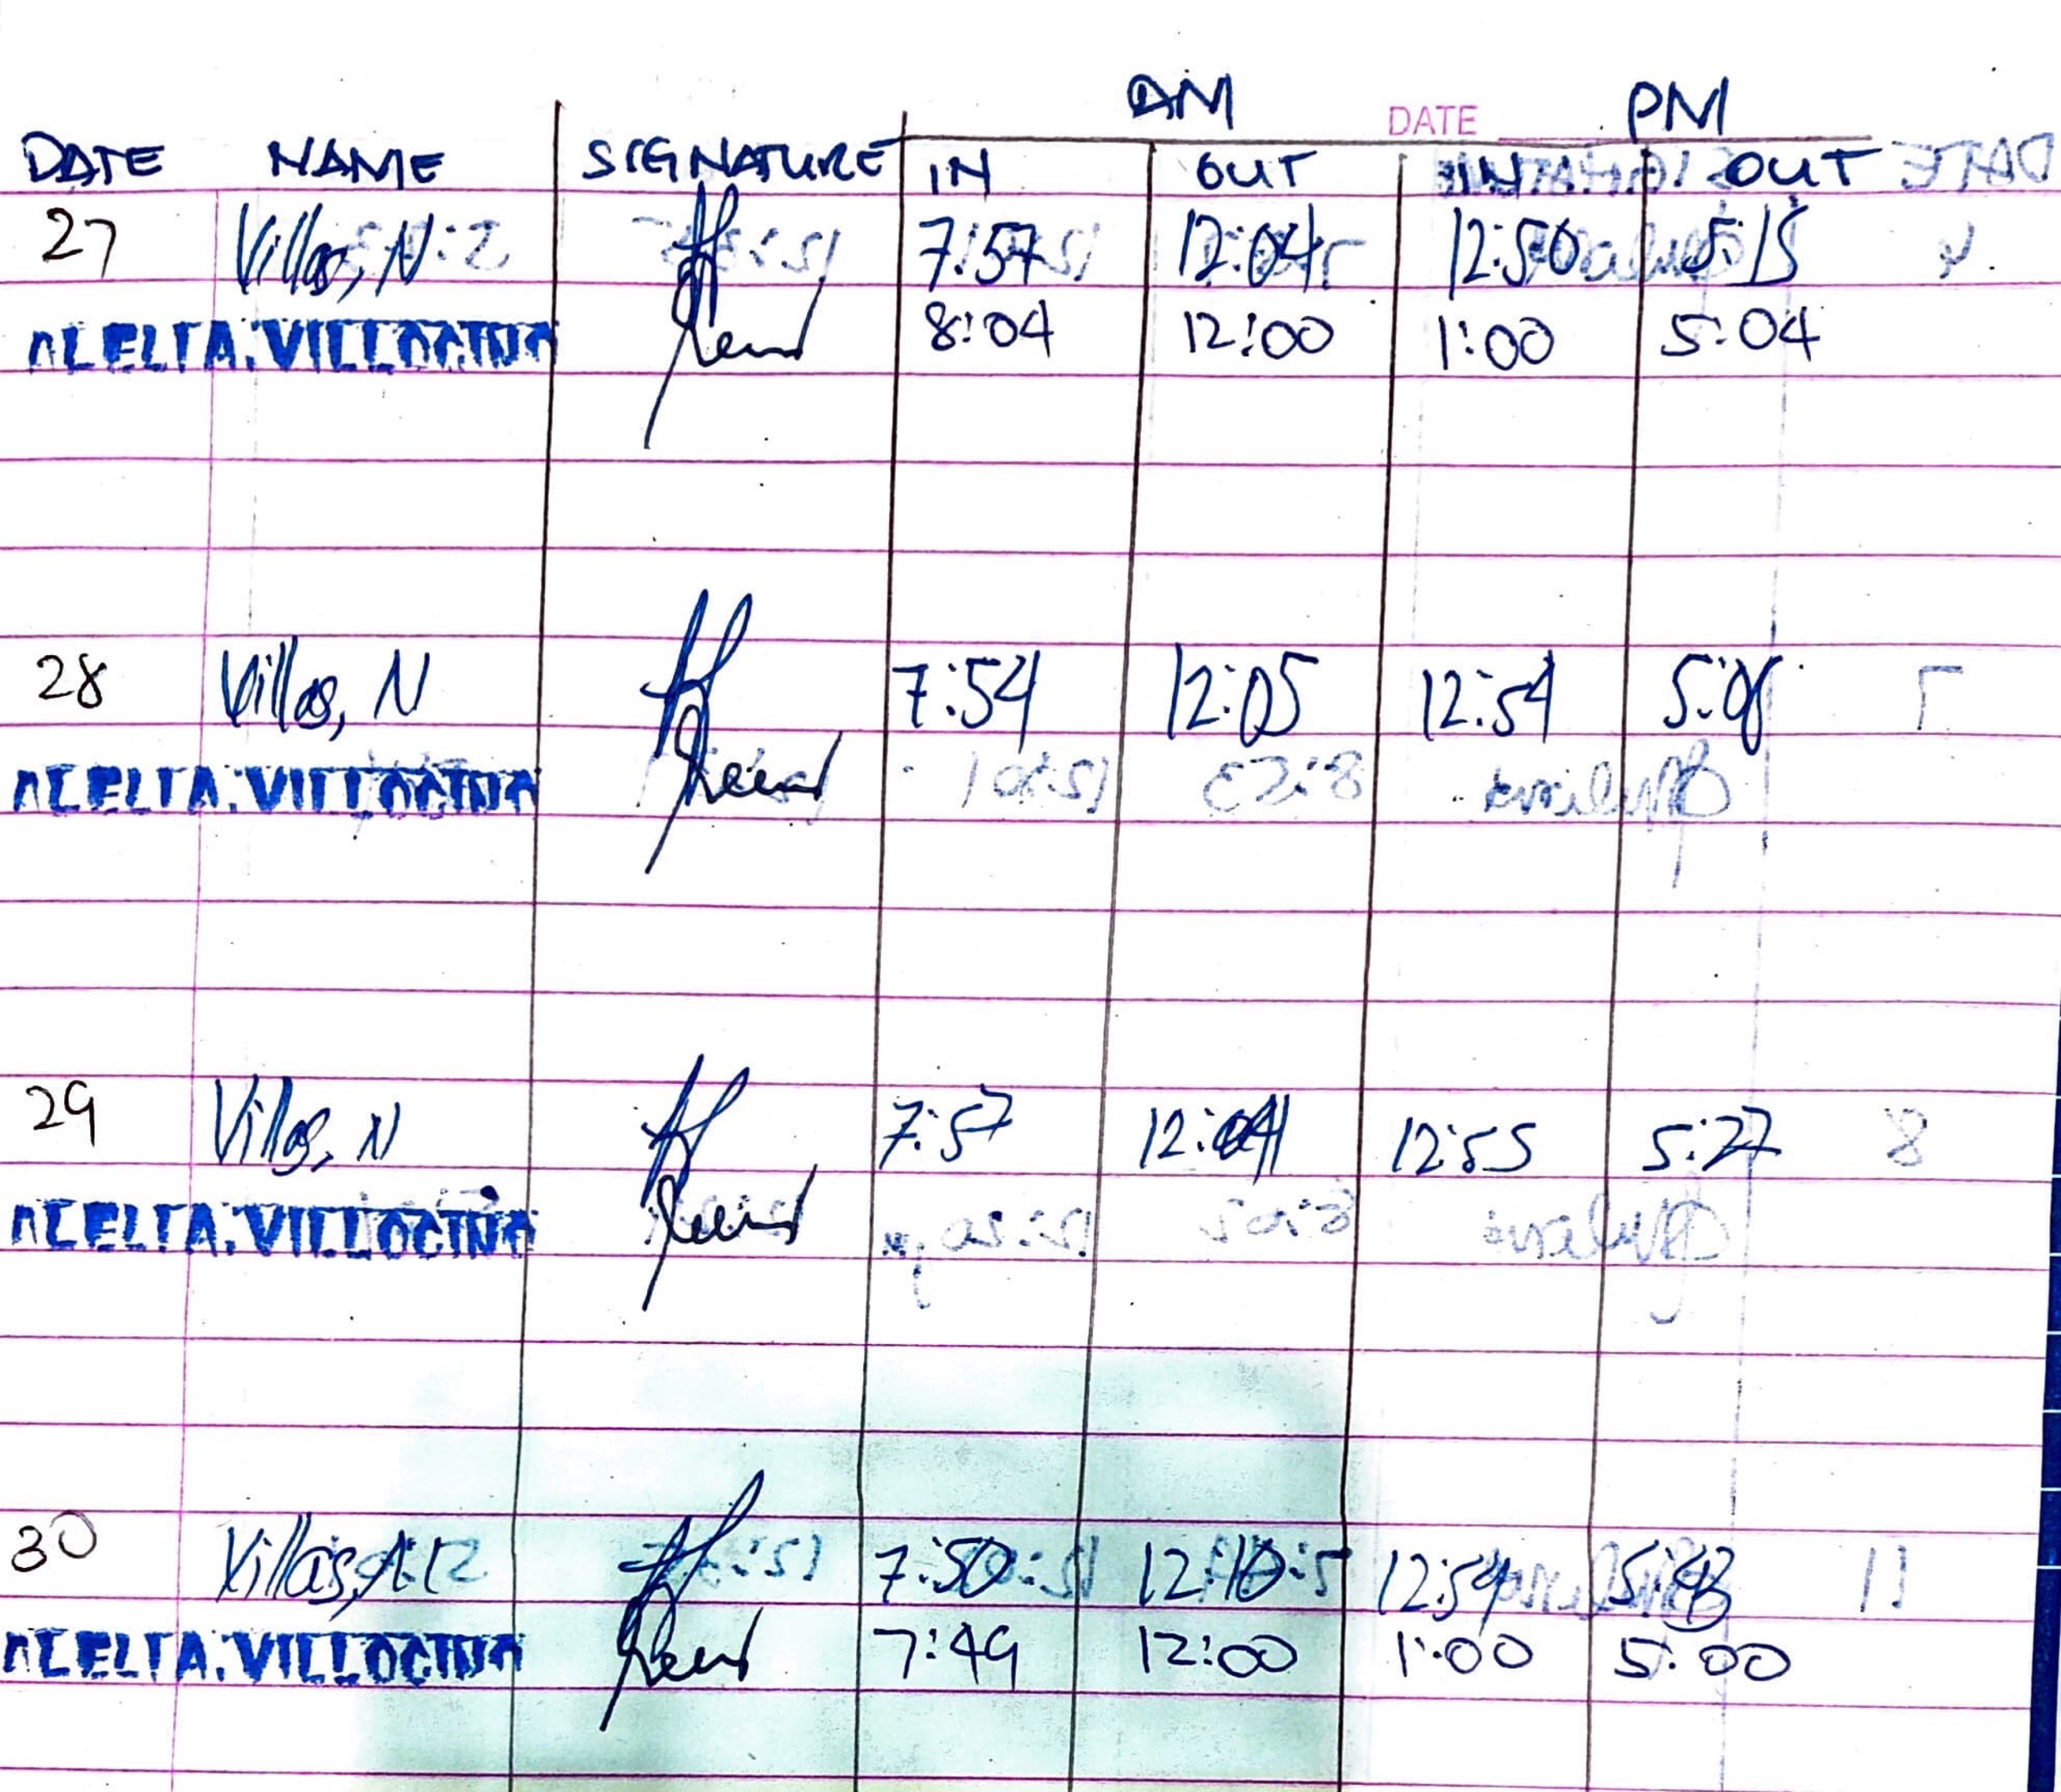 AM DATE PM
DATE NAME SIGNATURE IN OUT IN OUT
27 Villas, N 7:57 12:04 12:50 5:15
ALELI A. VILLOCINO 8:04 12:00 1:00 5:04
28 Villas, N 7:54 12:05 12:54
ALELI A. VILLOCINO
29 Villas, N 7:57 12:55 5:27
ALELI A. VILLOCINO
30 Villas, N 7:50 12:10 12:54
ALELI A. VILLOCINO 7:49 12:00 1:00 5:00